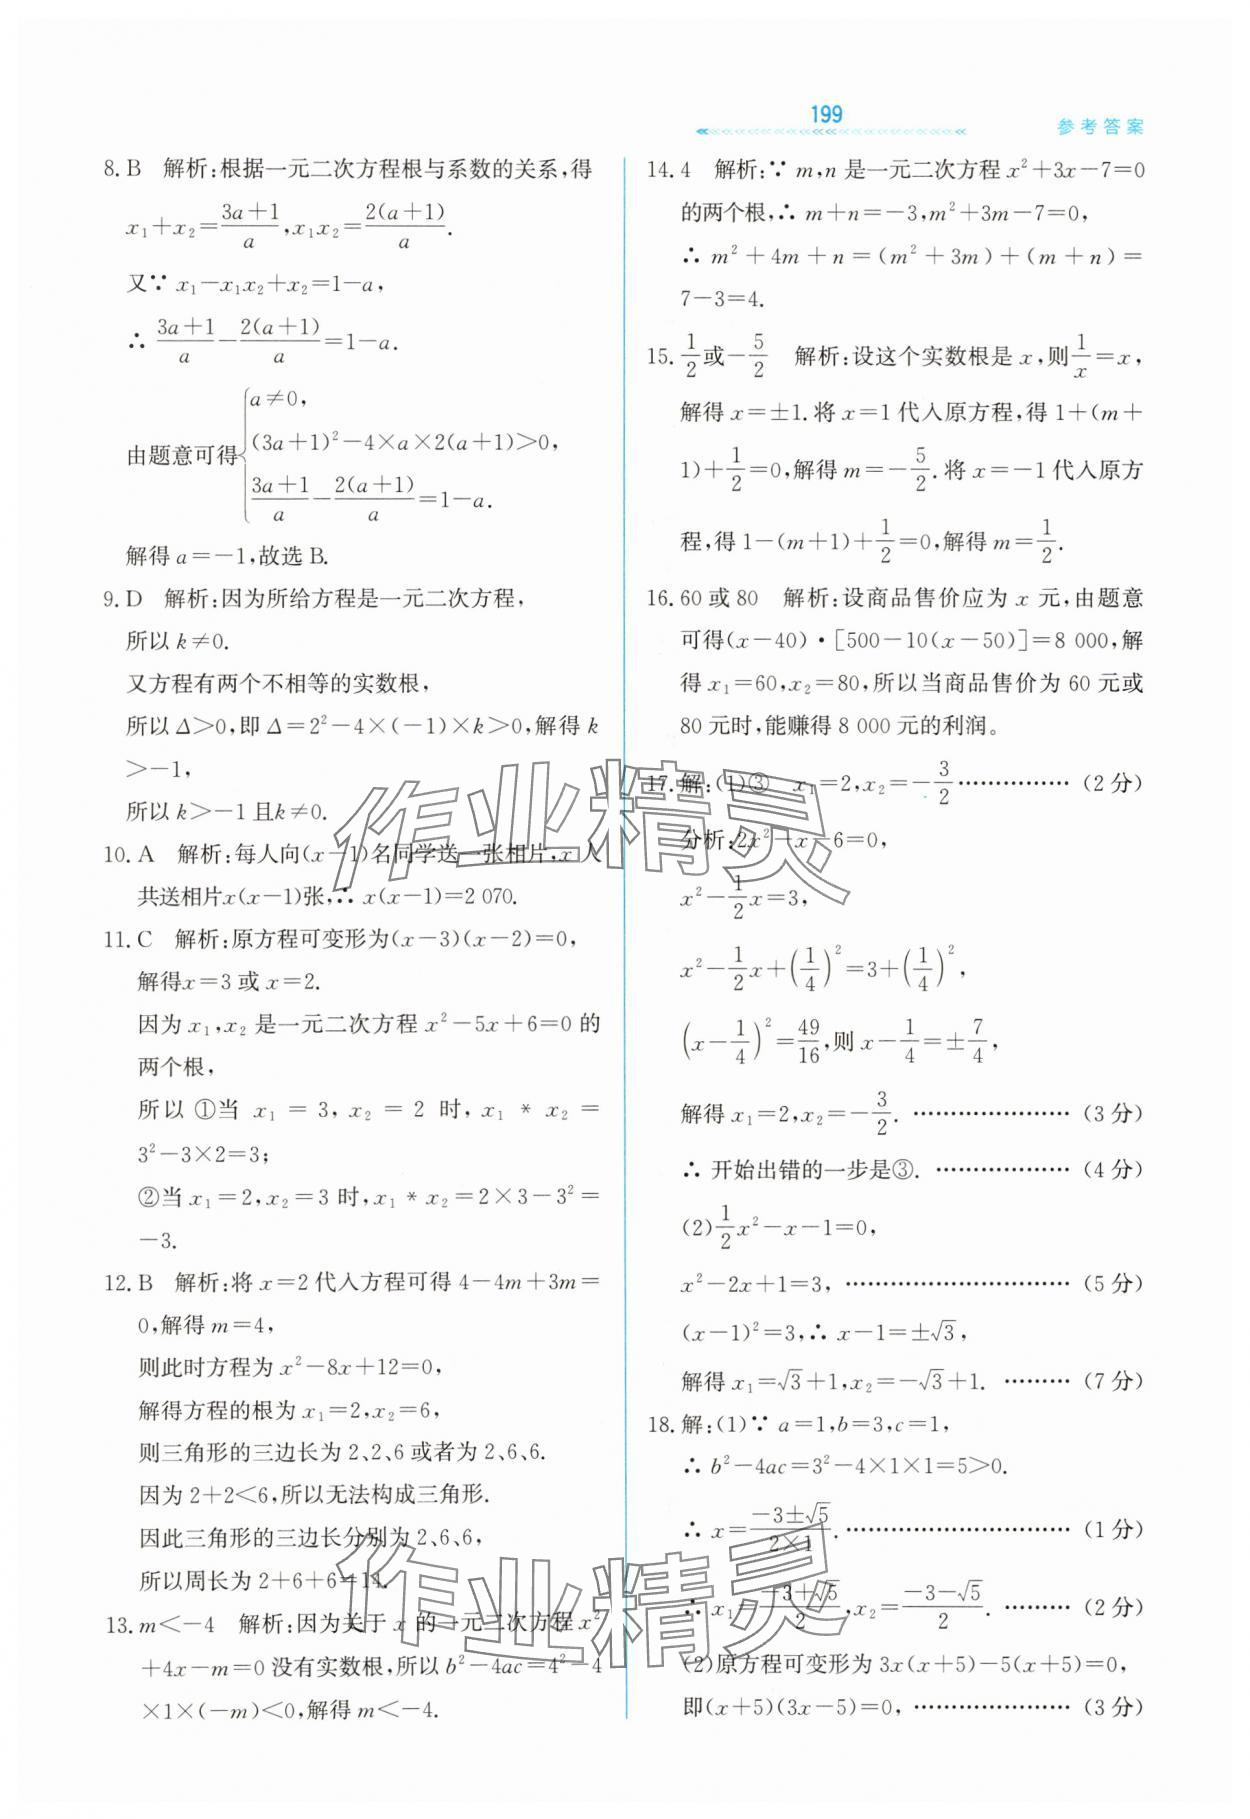 199
参考答案
8. B 解析:根据一元二次方程根与系数的关系,得
x₁+x₂=(3a+1)/a,x₁x₂=2(a+1)/a.
又∵ x₁-x₁x₂+x₂=1-a,
∴ (3a+1)/a-2(a+1)/a=1-a.
由题意可得{a≠0,
(3a+1)²-4×a×2(a+1)>0,
(3a+1)/a-2(a+1)/a=1-a.
解得 a=-1,故选 B.
9. D 解析:因为所给方程是一元二次方程,
所以 k≠0.
又方程有两个不相等的实数根,
所以 Δ>0,即 Δ=2²-4×(-1)×k>0,解得 k
>-1,
所以 k>-1 且k≠0.
10. A 解析:每人向(x-1)名同学送一张相片,x 人
共送相片x(x-1)张,∴ x(x-1)=2 070.
11. C 解析:原方程可变形为(x-3)(x-2)=0,
解得x=3 或 x=2.
因为 x₁,x₂ 是一元二次方程 x²-5x+6=0 的
两个根,
所以 ①当 x₁=3,x₂=2 时,x₁*x₂=
3²-3×2=3;
②当 x₁=2,x₂=3 时,x₁*x₂=2×3-3²=
-3.
12. B 解析:将 x=2 代入方程可得 4-4m+3m=
0,解得 m=4,
则此时方程为 x²-8x+12=0,
解得方程的根为 x₁=2,x₂=6,
则三角形的三边长为 2、2、6 或者为 2、6、6.
因为 2+2<6,所以无法构成三角形.
因此三角形的三边长分别为 2、6、6,
所以周长为 2+6+6=14.
13. m<-4 解析:因为关于 x 的一元二次方程 x²
+4x-m=0 没有实数根,所以 b²-4ac=4²-4
×1×(-m)<0,解得 m<-4.
14. 4 解析:∵ m,n 是一元二次方程 x²+3x-7=0
的两个根,∴ m+n=-3,m²+3m-7=0,
∴ m²+4m+n=(m²+3m)+(m+n)=
7-3=4.
15. 1/2或-5/2 解析:设这个实数根是 x,则1/x=x,
解得 x=±1.将 x=1 代入原方程,得 1+(m+
1)+1/2=0,解得 m=-5/2.将 x=-1 代入原方
程,得 1-(m+1)+1/2=0,解得 m=1/2.
16. 60 或 80 解析:设商品售价应为 x 元,由题意
可得(x-40)·[500-10(x-50)]=8 000,解
得 x₁=60,x₂=80,所以当商品售价为 60 元或
80 元时,能赚得 8 000 元的利润。
17. 解:(1)③ x₁=2,x₂=-3/2 ……………(2 分)
分析:2x²-x-6=0,
x²-1/2x=3,
x²-1/2x+(1/4)²=3+(1/4)²,
(x-1/4)²=49/16,则 x-1/4=±7/4,
解得 x₁=2,x₂=-3/2. …………………(3 分)
∴ 开始出错的一步是③. ………………(4 分)
(2)1/2x²-x-1=0,
x²-2x+1=3, …………………………(5 分)
(x-1)²=3,∴ x-1=±√3,
解得 x₁=√3+1,x₂=-√3+1. ………(7 分)
18. 解:(1)∵ a=1,b=3,c=1,
∴ b²-4ac=3²-4×1×1=5>0.
∴ x=(-3±√5)/(2×1). …………………………(1 分)
∴ x₁=(-3+√5)/2,x₂=(-3-√5)/2. ………(2 分)
(2)原方程可变形为 3x(x+5)-5(x+5)=0,
即(x+5)(3x-5)=0, …………………(3 分)
作业精灵
作业精灵